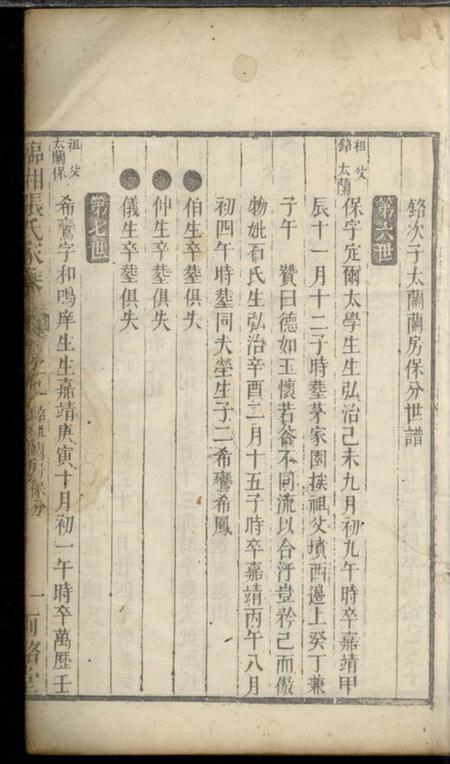 鉻次子太蘭蘭房保分世譜
第六世
祖 父
鉻 太蘭
保字定爾太學生生弘治己未九月初九午時卒嘉靖甲
辰十一月十二子時塟茅家園挨祖父墳西邊上癸丁兼
子午 贊曰德如玉懷若谷不同流以合汙豈矜己而傲
物妣石氏生弘治辛酉二月十五子時卒嘉靖丙午八月
初四午時塟同夫塋生子二希鸞希鳳
伯生卒塟俱失
仲生卒塟俱失
儀生卒塟俱失
第七世
祖 父
太蘭保
希鸞字和鳴庠生生嘉靖庚寅十月初一午時卒萬歷壬
臨湘張氏家乘